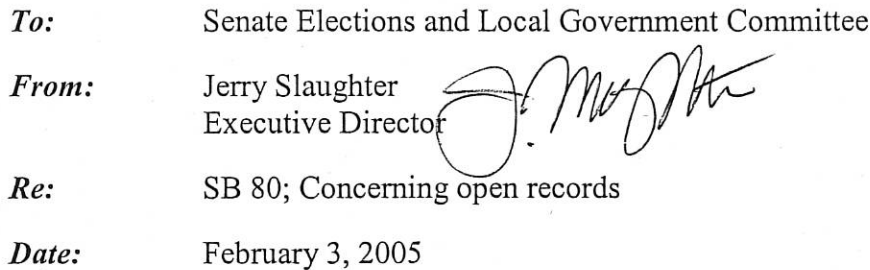 To: Senate Elections and Local Government Committee
From: Jerry Slaughter
Executive Director
Re: SB 80; Concerning open records
Date: February 3, 2005